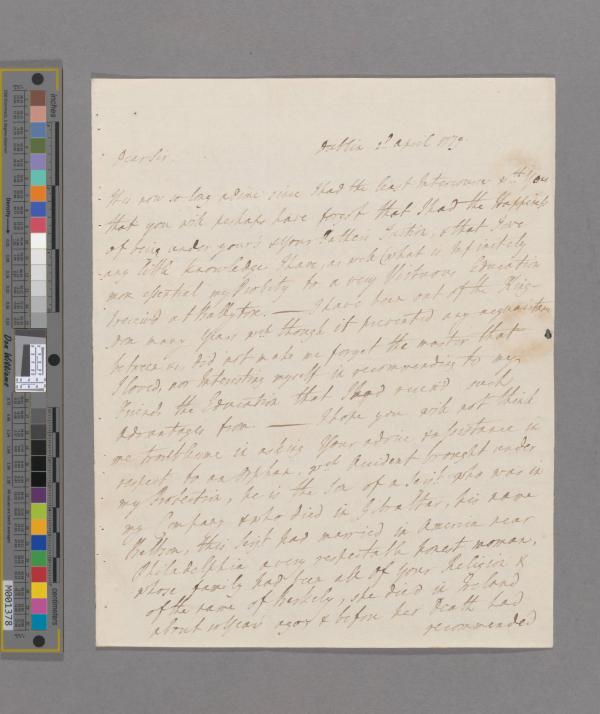 Dublin 2d April 1779
Dear Sir,
It is now so long a time since I had the least Intercourse wth You
that you will perhaps have forgot that I had the Happiness
of being under your's & your Father's Tuition, & that I owe
any little knowledge I have, as well (what is Infinitely
more essential my Probity to a very Virtuous Education
I receiv'd at Ballytore. — I have been out of the King-
dom many Years wch though it prevented any acquaintance
between us, did not make me forget the master that
I loved, nor Interesting myself in recommending to my
Friends the Education that I had receiv'd such
advantages from. — I hope you will not think
me troublesome in asking Your advice & assistance in
respect to an Orphan, wch Accident brought under
my Protection, he is the Son of a Serjt who was in
my Company & who died in Gibraltar, his name
this Serjt had married in America near
Philadelphia a very respectable honest woman,
whose family had been all of your Religion &
of the name of she died in Ireland
about 10 Years ago & before her Death had
recommended
inches
centimeters
Don Williams
Density
M001378